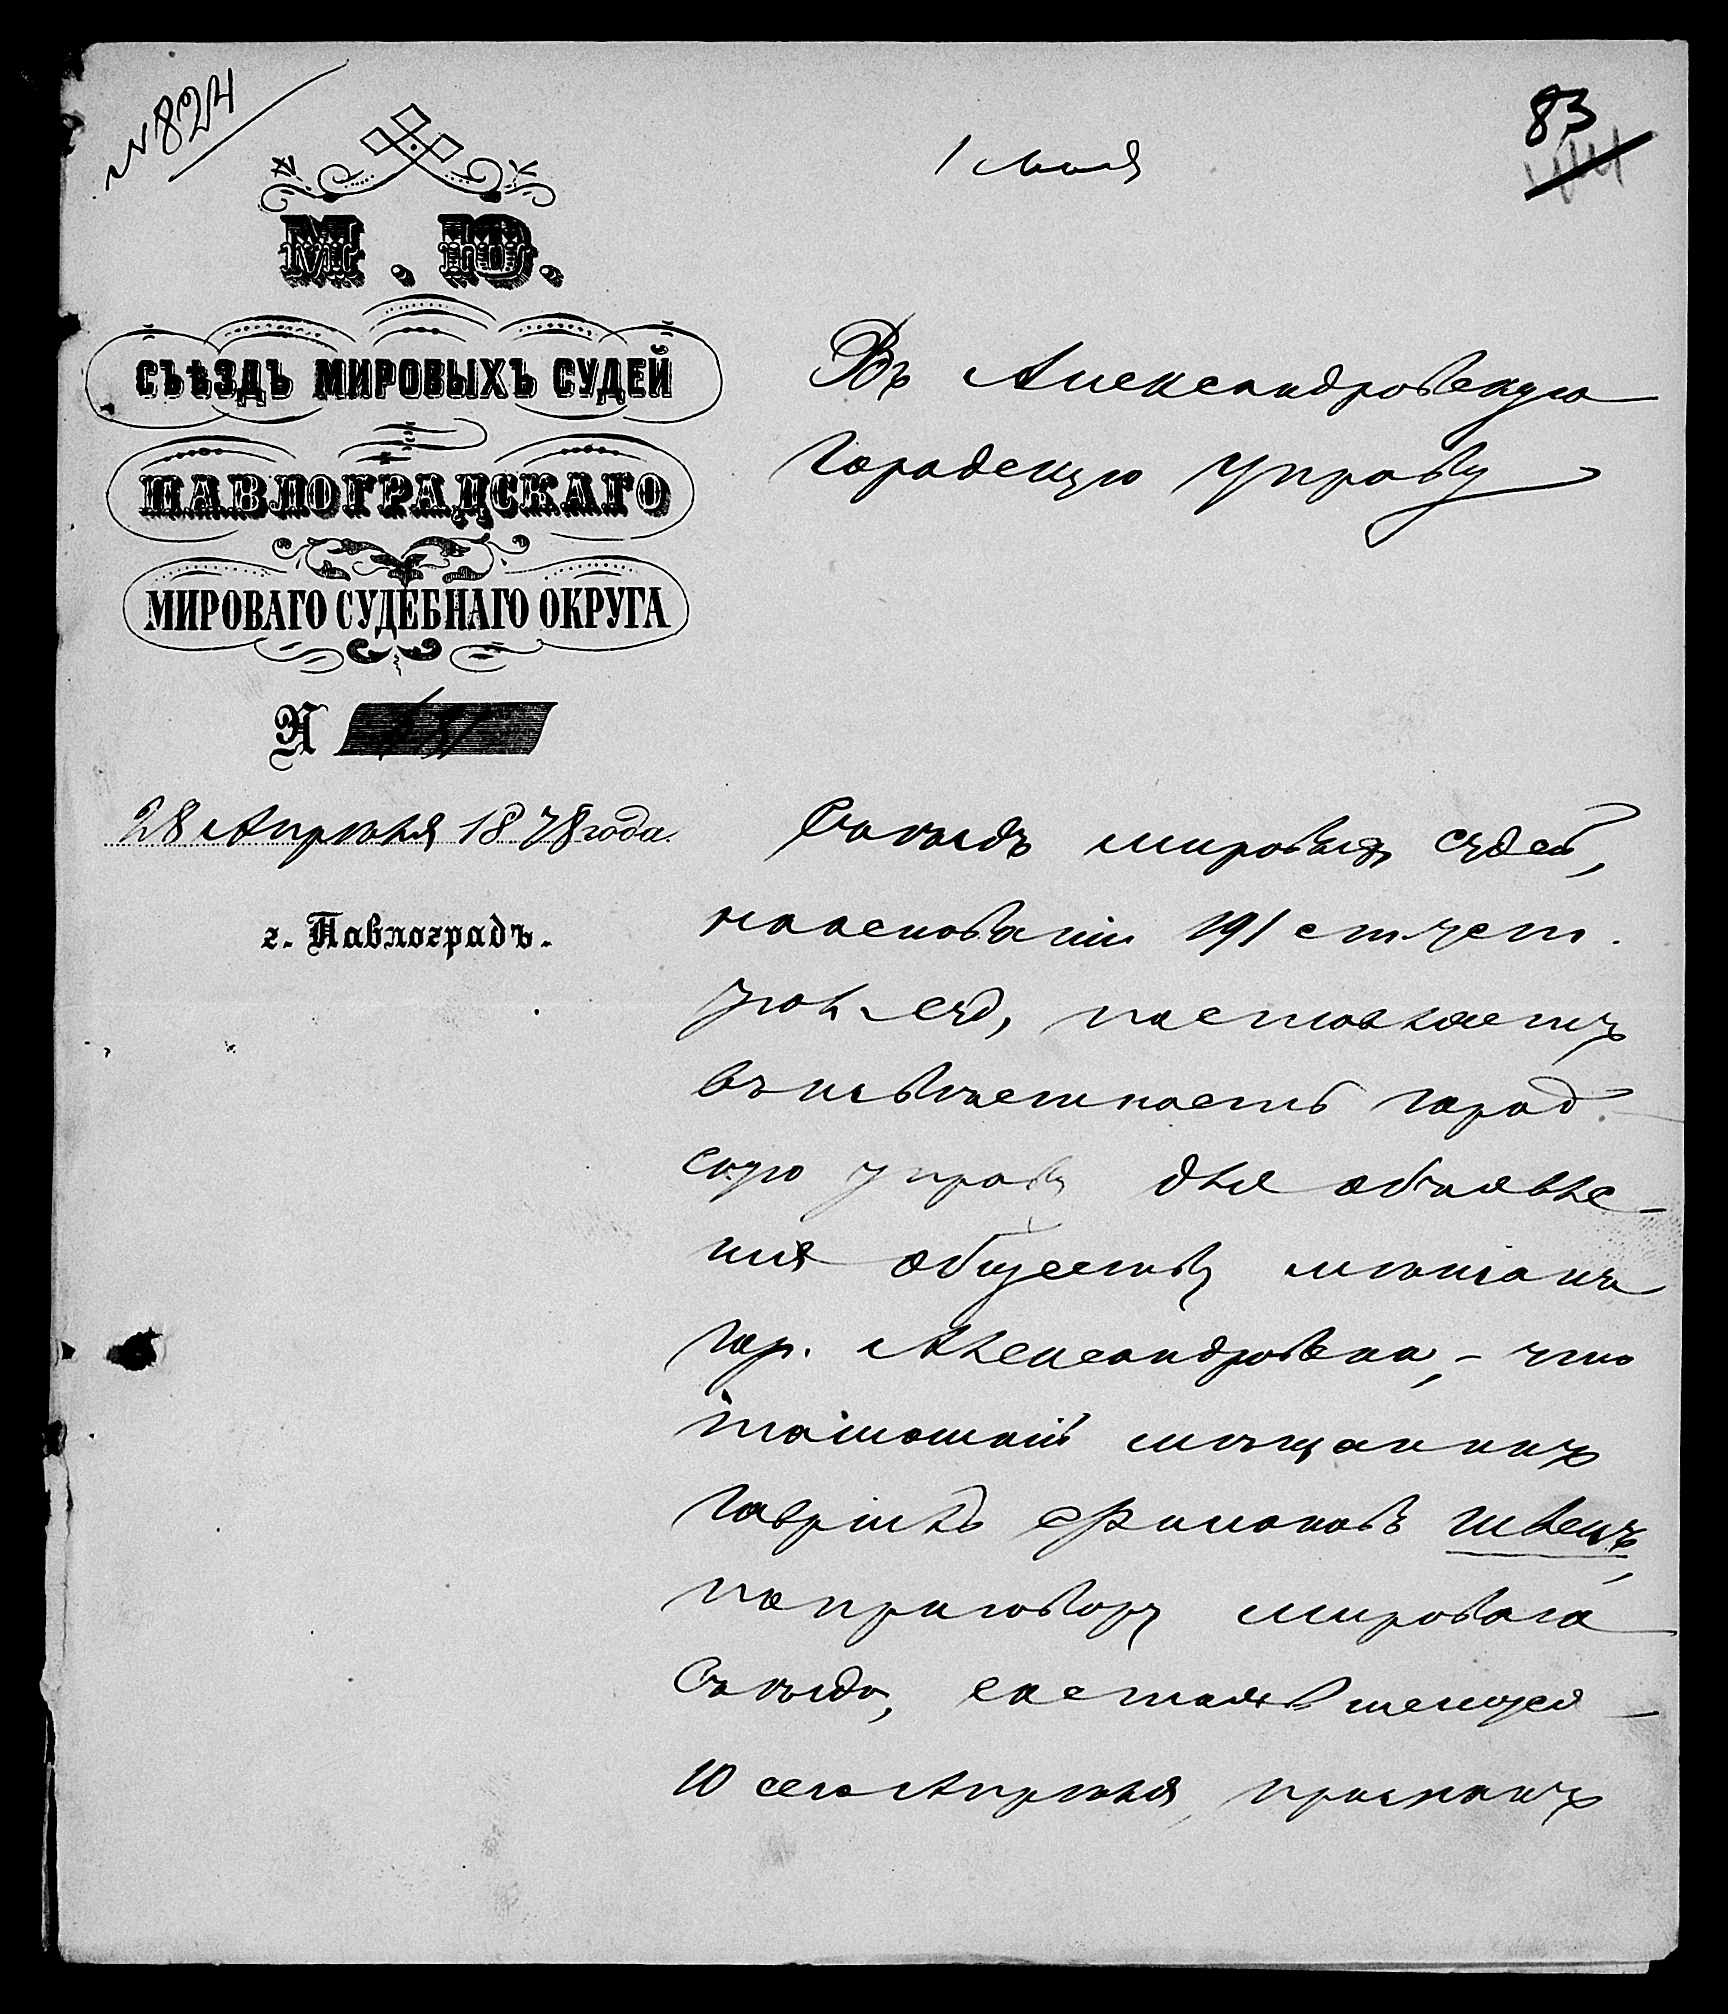 № 824
1 мая
83
М. Ю.
СЪѢЗДЪ МИРОВЫХЪ СУДЕЙ
ПАВЛОГРАДСКАГО
МИРОВАГО СУДЕБНАГО ОКРУГА
№
28 Апрѣля 1878 года.
г. Павлоградъ.
Въ Александровскую
Городскую Управу
Съѣздъ мировыхъ судей,
на основаніи 191 ст. уст.
угол. суд, поставляетъ
въ извѣстность Город
скую управу для объявле
нія обществу мѣщанъ
гор. Александровска, - что
мѣщанинъ
Гаврiилъ Филиповъ Швецъ,
по приговору мироваго
Съѣзда, состоявшемуся
10 сего Апрѣля, признанъ